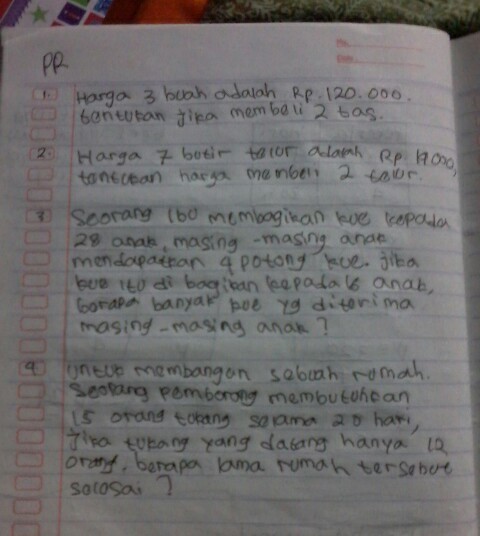 PR
1. Harga 3 buah adalah Rp. 120.000.
tentukan jika membeli 2 tas.
2. Harga 7 butir telur adalah Rp 17.000,
tentukan harga membeli 2 telur.
3 Seorang ibo membagikan kue kepada
28 anak, masing-masing anak
mendapatkan 4 potong kue. jika
kue ito di bagikan kepada 16 anak,
berapa banyak kue yg diterima
masing-masing anak ?
4 Untuk membangun sebuah rumah.
Seorang pemborong membutuhkan
15 orang tukang selama 20 hari,
jika tukang yang datang hanya 12
orang, berapa lama rumah tersebut
selesai ?